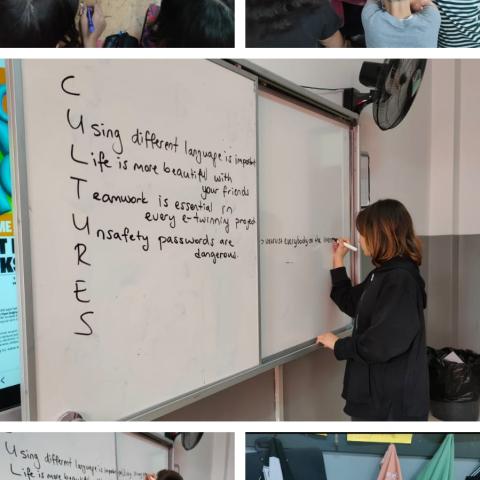 C
Using different language is important
Life is more beautiful with
your friends
Teamwork is essential in
every e-twinning project
Unsafety passwords are
dangerous.
R
E
S
everybody on the
Using different language is
Life is more beautiful